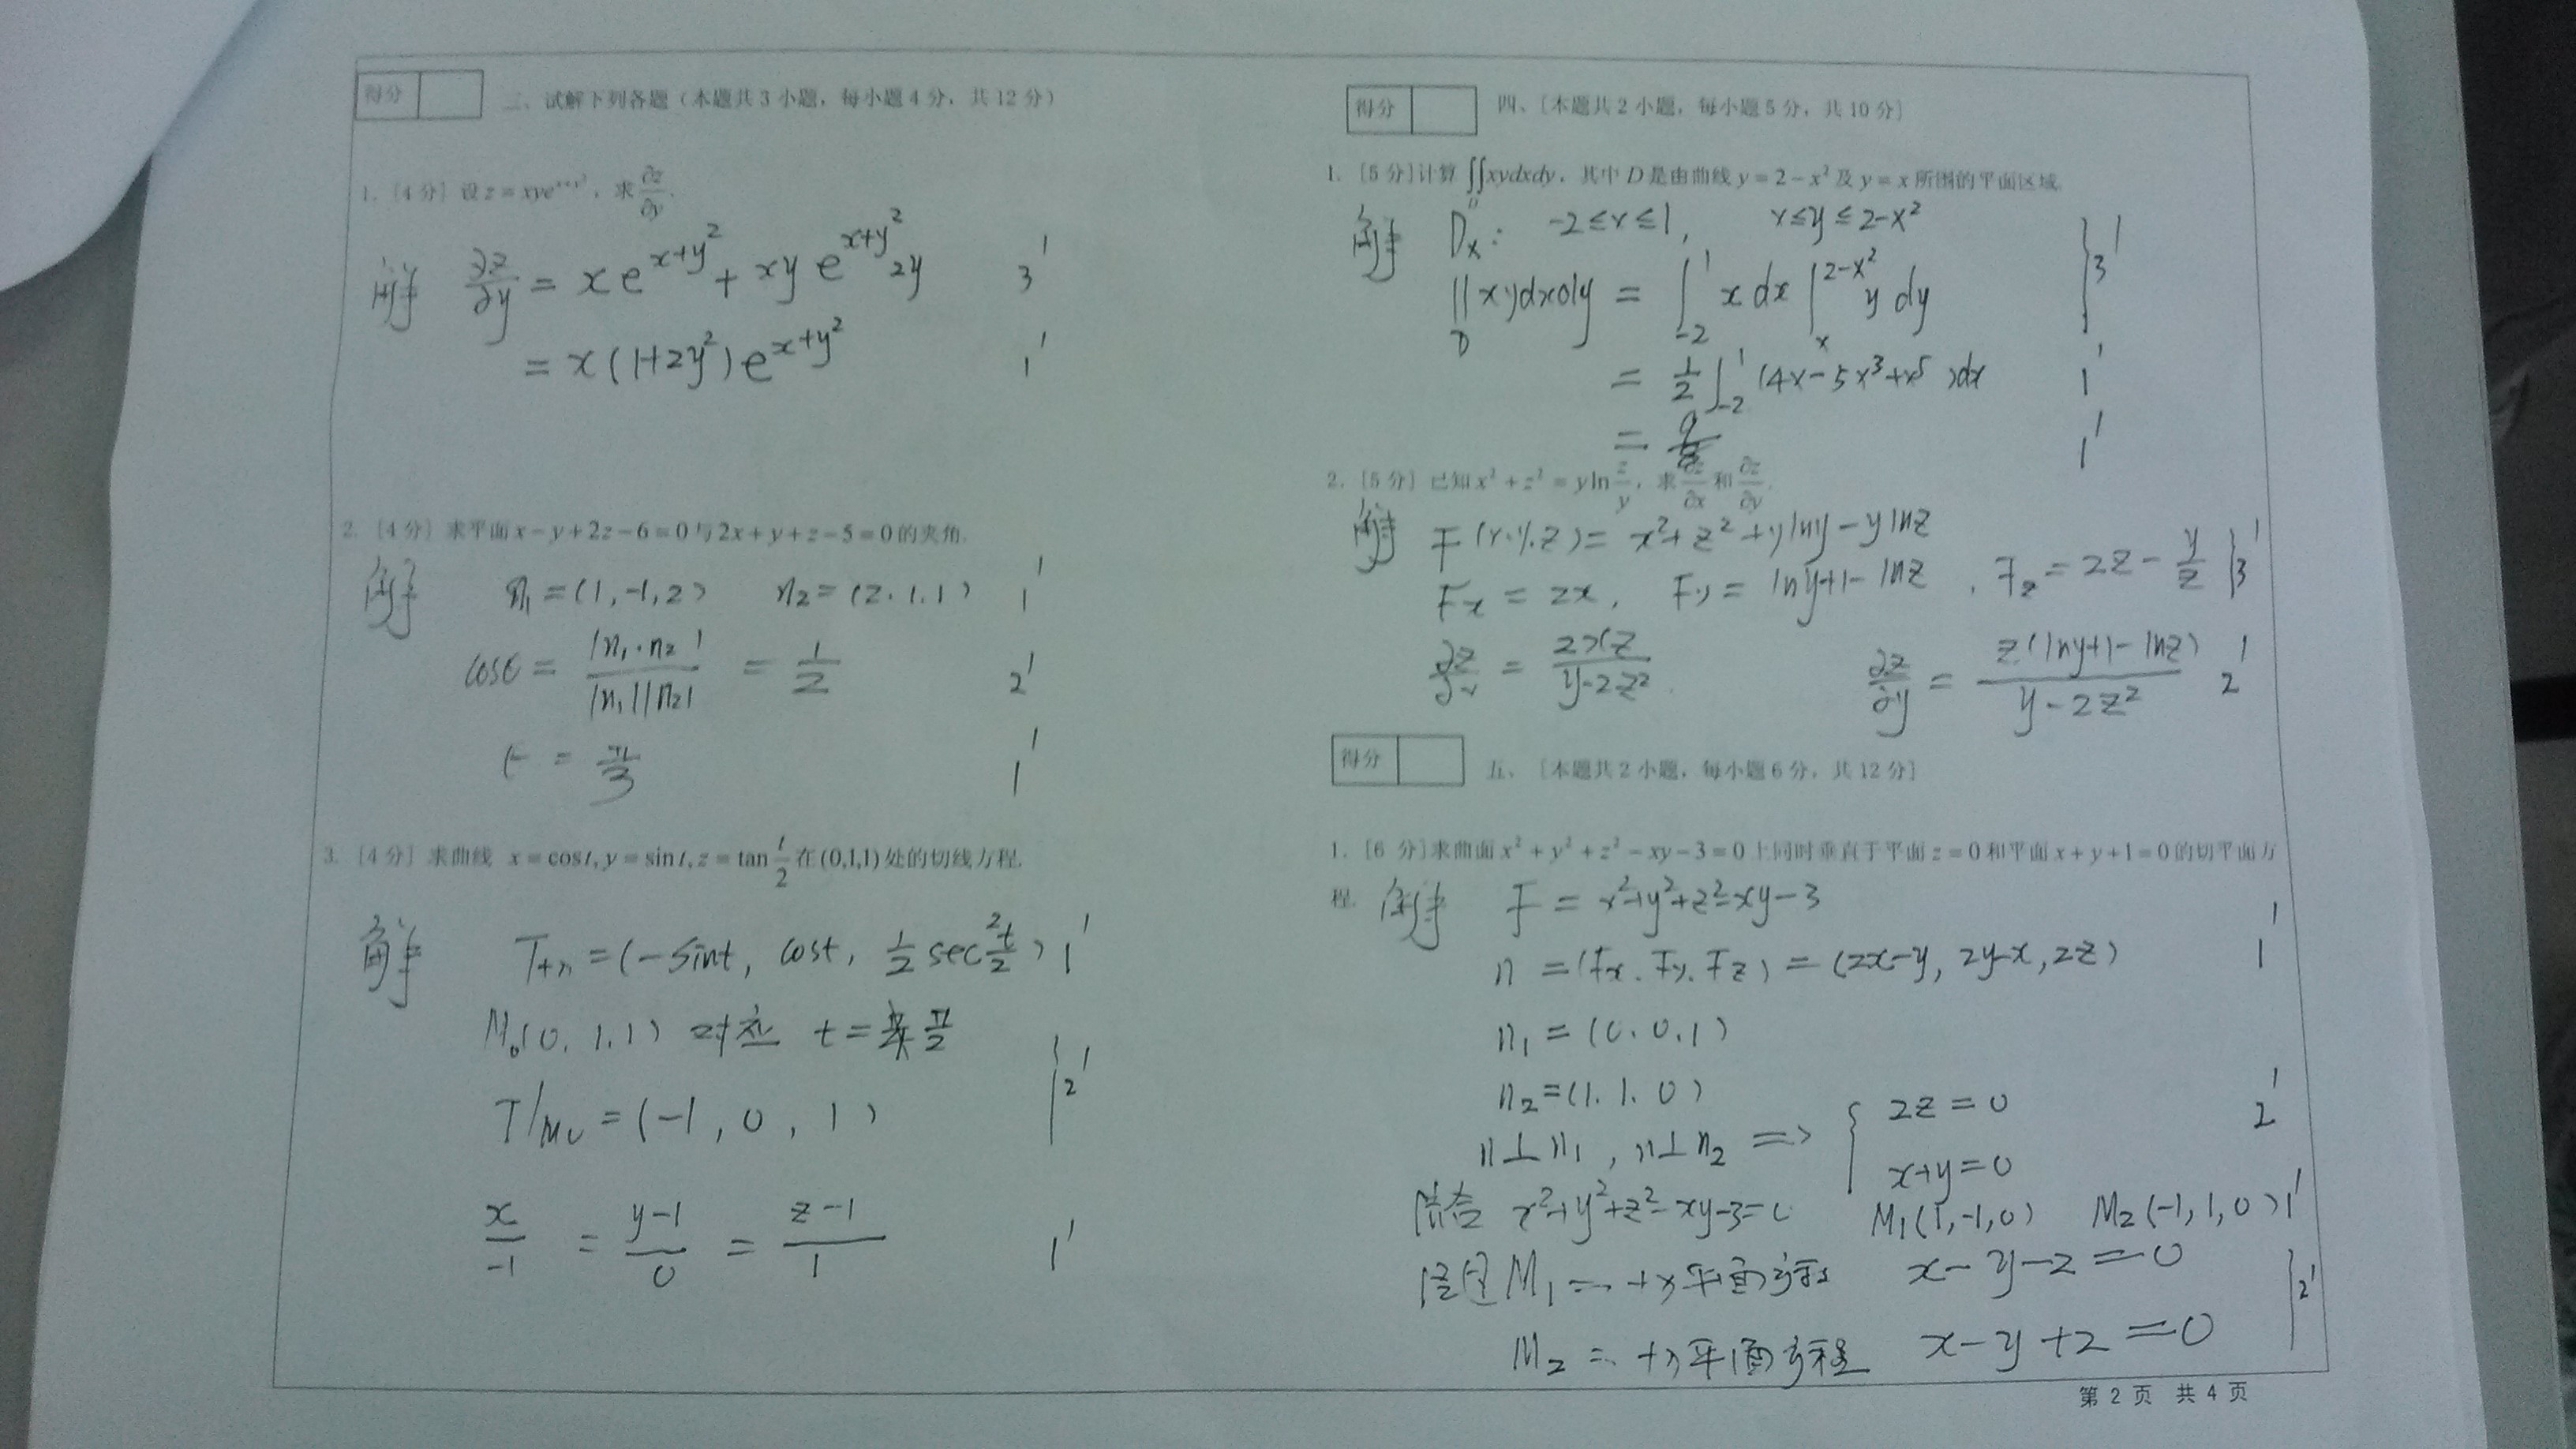 得分
三、试解下列各题（本题共3小题，每小题4分，共12分）
1. [4分] 设 z = xye^{x+y²}，求 ∂z/∂y.
解 ∂z/∂y = x e^{x+y²} + xy e^{x+y²} 2y 3'
= x(1+2y²)e^{x+y²} 1'
2. [4分] 求平面 x-y+2z-6=0 与 2x+y+z-5=0 的夹角.
解 n₁=(1,-1,2) n₂=(2.1.1) 1'
cosθ = |n₁·n₂| / |n₁||n₂| = 1/2 2'
θ = π/3 1'
3. [4分] 求曲线 x=cost, y=sint, z=tan t/2 在 (0,1,1) 处的切线方程.
解 T(t)=(-sint, cost, 1/2 sec² t/2) 1'
M₀(0.1.1) 对应 t= π/2
T|M₀=(-1, 0, 1) 2'
x/-1 = y-1/0 = z-1/1 1'
得分
四、[本题共2小题，每小题5分，共10分]
1. [5分] 计算 ∬xydxdy，其中 D 是由曲线 y=2-x² 及 y=x 所围的平面区域.
解 Dx: -2≤x≤1, x≤y≤2-x²
∬_D xydxdy = ∫_{-2}^{1} x dx ∫_{x}^{2-x²} y dy 3'
= 1/2 ∫_{-2}^{1} (4x-5x³+x⁵)dx 1'
= 9/8 1'
2. [5分] 已知 x²+z²=y ln z/y，求 ∂z/∂x 和 ∂z/∂y.
解 F(x.y.z)= x²+z²+ylny-ylnz
Fx = 2x, Fy = lny+1-lnz , Fz = 2z - y/z 3'
∂z/∂x = 2xz/y-2z² ∂z/∂y = z(lny+1-lnz)/y-2z² 2'
得分
五、[本题共2小题，每小题6分，共12分]
1. [6分] 求曲面 x²+y²+z²-xy-3=0 上同时垂直于平面 z=0 和平面 x+y+1=0 的切平面方
程.
解 F = x²+y²+z²-xy-3
n =(Fx.Fy.Fz) = (2x-y, 2y-x, 2z) 1'
n₁ = (0.0.1)
n₂=(1.1.0)
n⊥n₁, n⊥n₂ ⇒ { 2z=0 2'
x+y=0
结合 x²+y²+z²-xy-3=0 M₁(1,-1,0) M₂(-1,1,0) 1'
M₁ 切平面方程 x-y-2=0
M₂ 切平面方程 x-y+2=0 2'
第 2 页 共 4 页